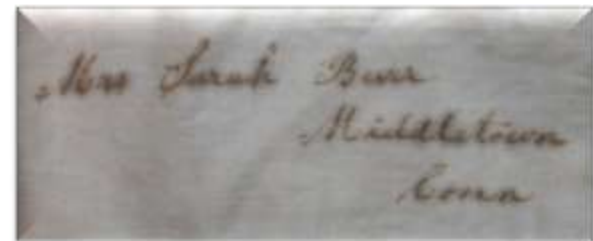 Mrs Sarah Burr
Middletown
Conn